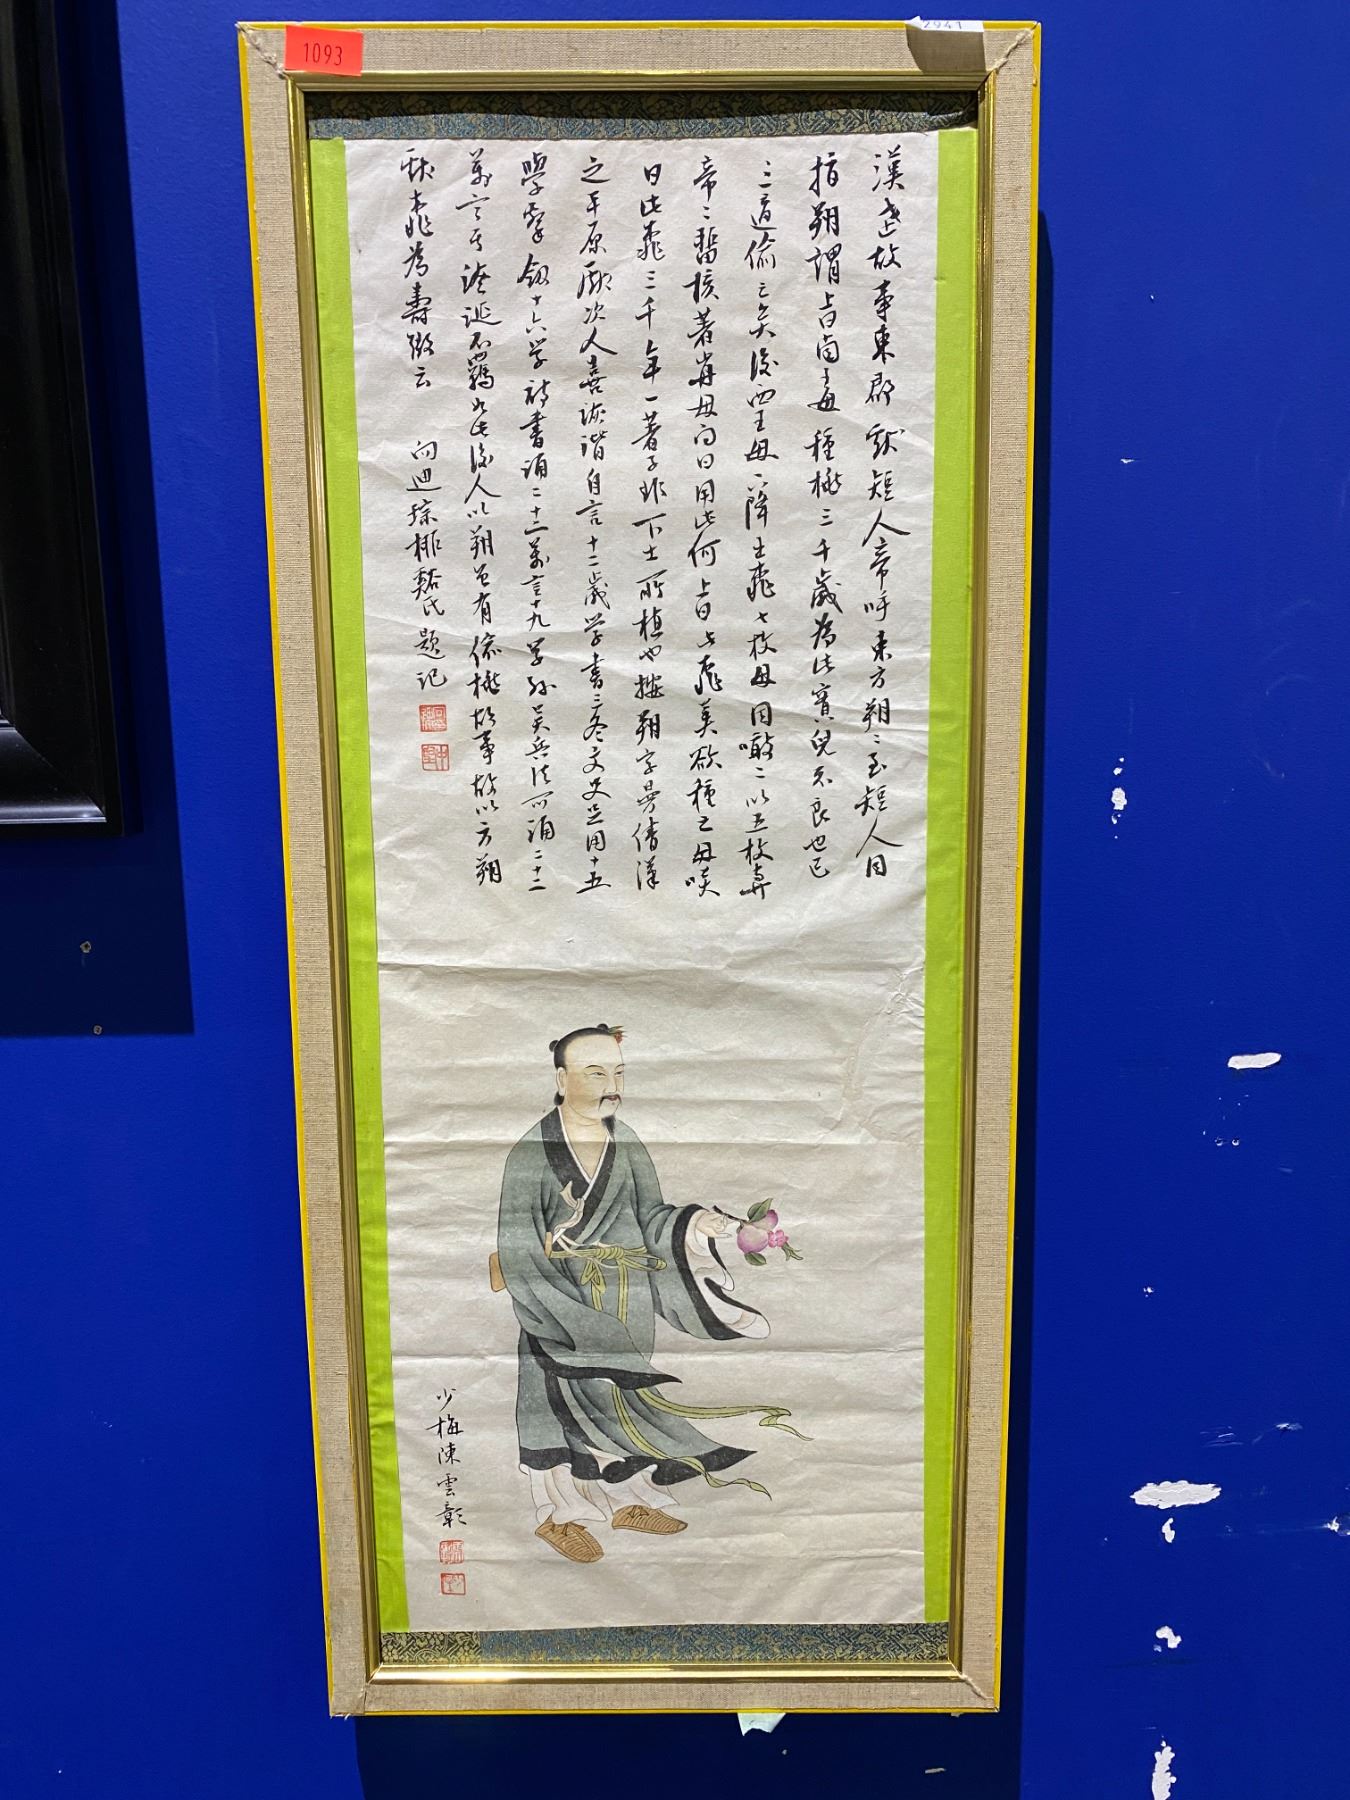 1093
2941
漢武故事東郡獻短人帝呼東方朔〻至短人因
指朔謂上曰西王母種桃三千歲為此實兒不良也已
三過偷之矣後西王母下降出桃七枚母因噉二以五枚與
帝〻留核著前母問曰用此何上曰此桃美欲種之母嘆
曰此桃三千年一著子非下土所植也按朔字曼倩漢
之平原厭次人喜詼諧自言十二歲学書三冬文史足用十五
學擊劍十六学詩書誦二十二萬言十九學孫吳兵法亦誦二十二
萬言其詼誕不羈如此後人以朔曾有偷桃故事故以方朔
獻桃為壽徵云
向迪琮柳谿氏題記
少梅陳雲彰